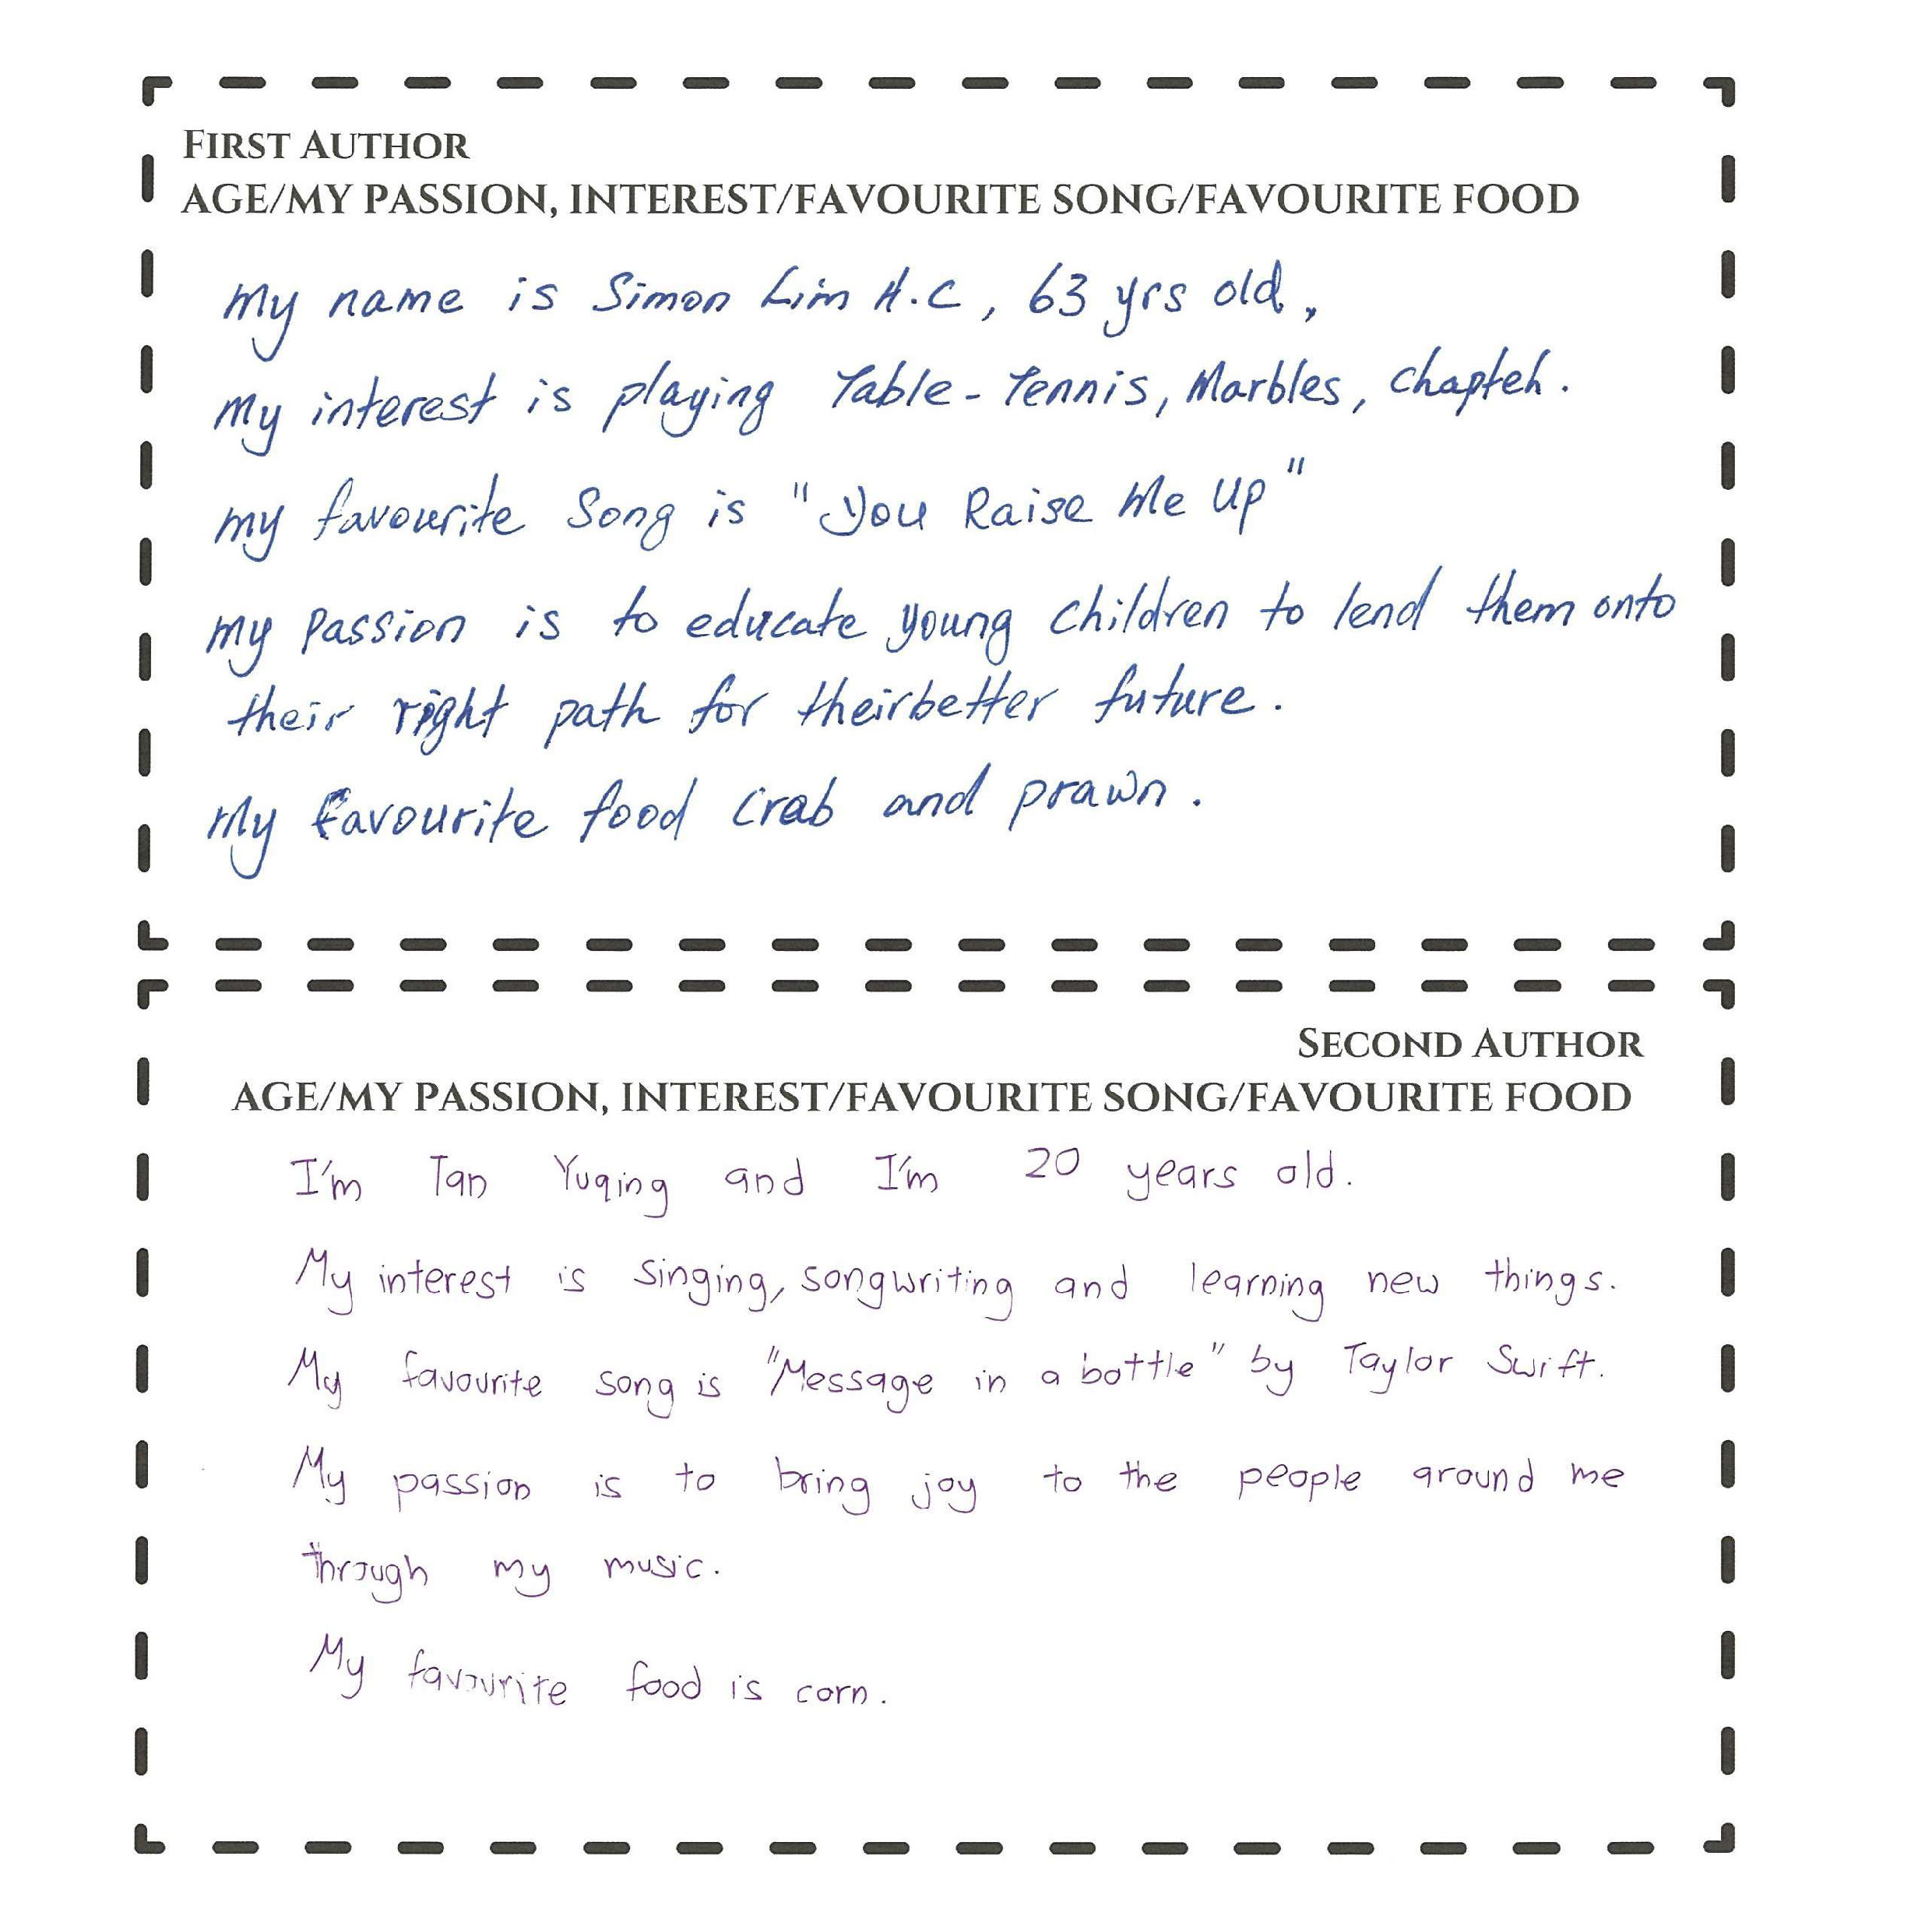 FIRST AUTHOR
AGE/MY PASSION, INTEREST/FAVOURITE SONG/FAVOURITE FOOD
My name is Simon Lim H.C, 63 yrs old,
My interest is playing Table-Tennis, Marbles, chapteh.
my favourite Song is "You Raise Me Up"
my passion is to educate young children to lend them onto
their right path for theirbetter future.
My favourite food crab and prawn.
SECOND AUTHOR
AGE/MY PASSION, INTEREST/FAVOURITE SONG/FAVOURITE FOOD
I'm Tan Yuqing and I'm 20 years old.
My interest is singing, songwriting and learning new things.
My favourite song is "Message in a bottle" by Taylor Swift.
My passion is to bring joy to the people around me
through my music.
My favourite food is corn.